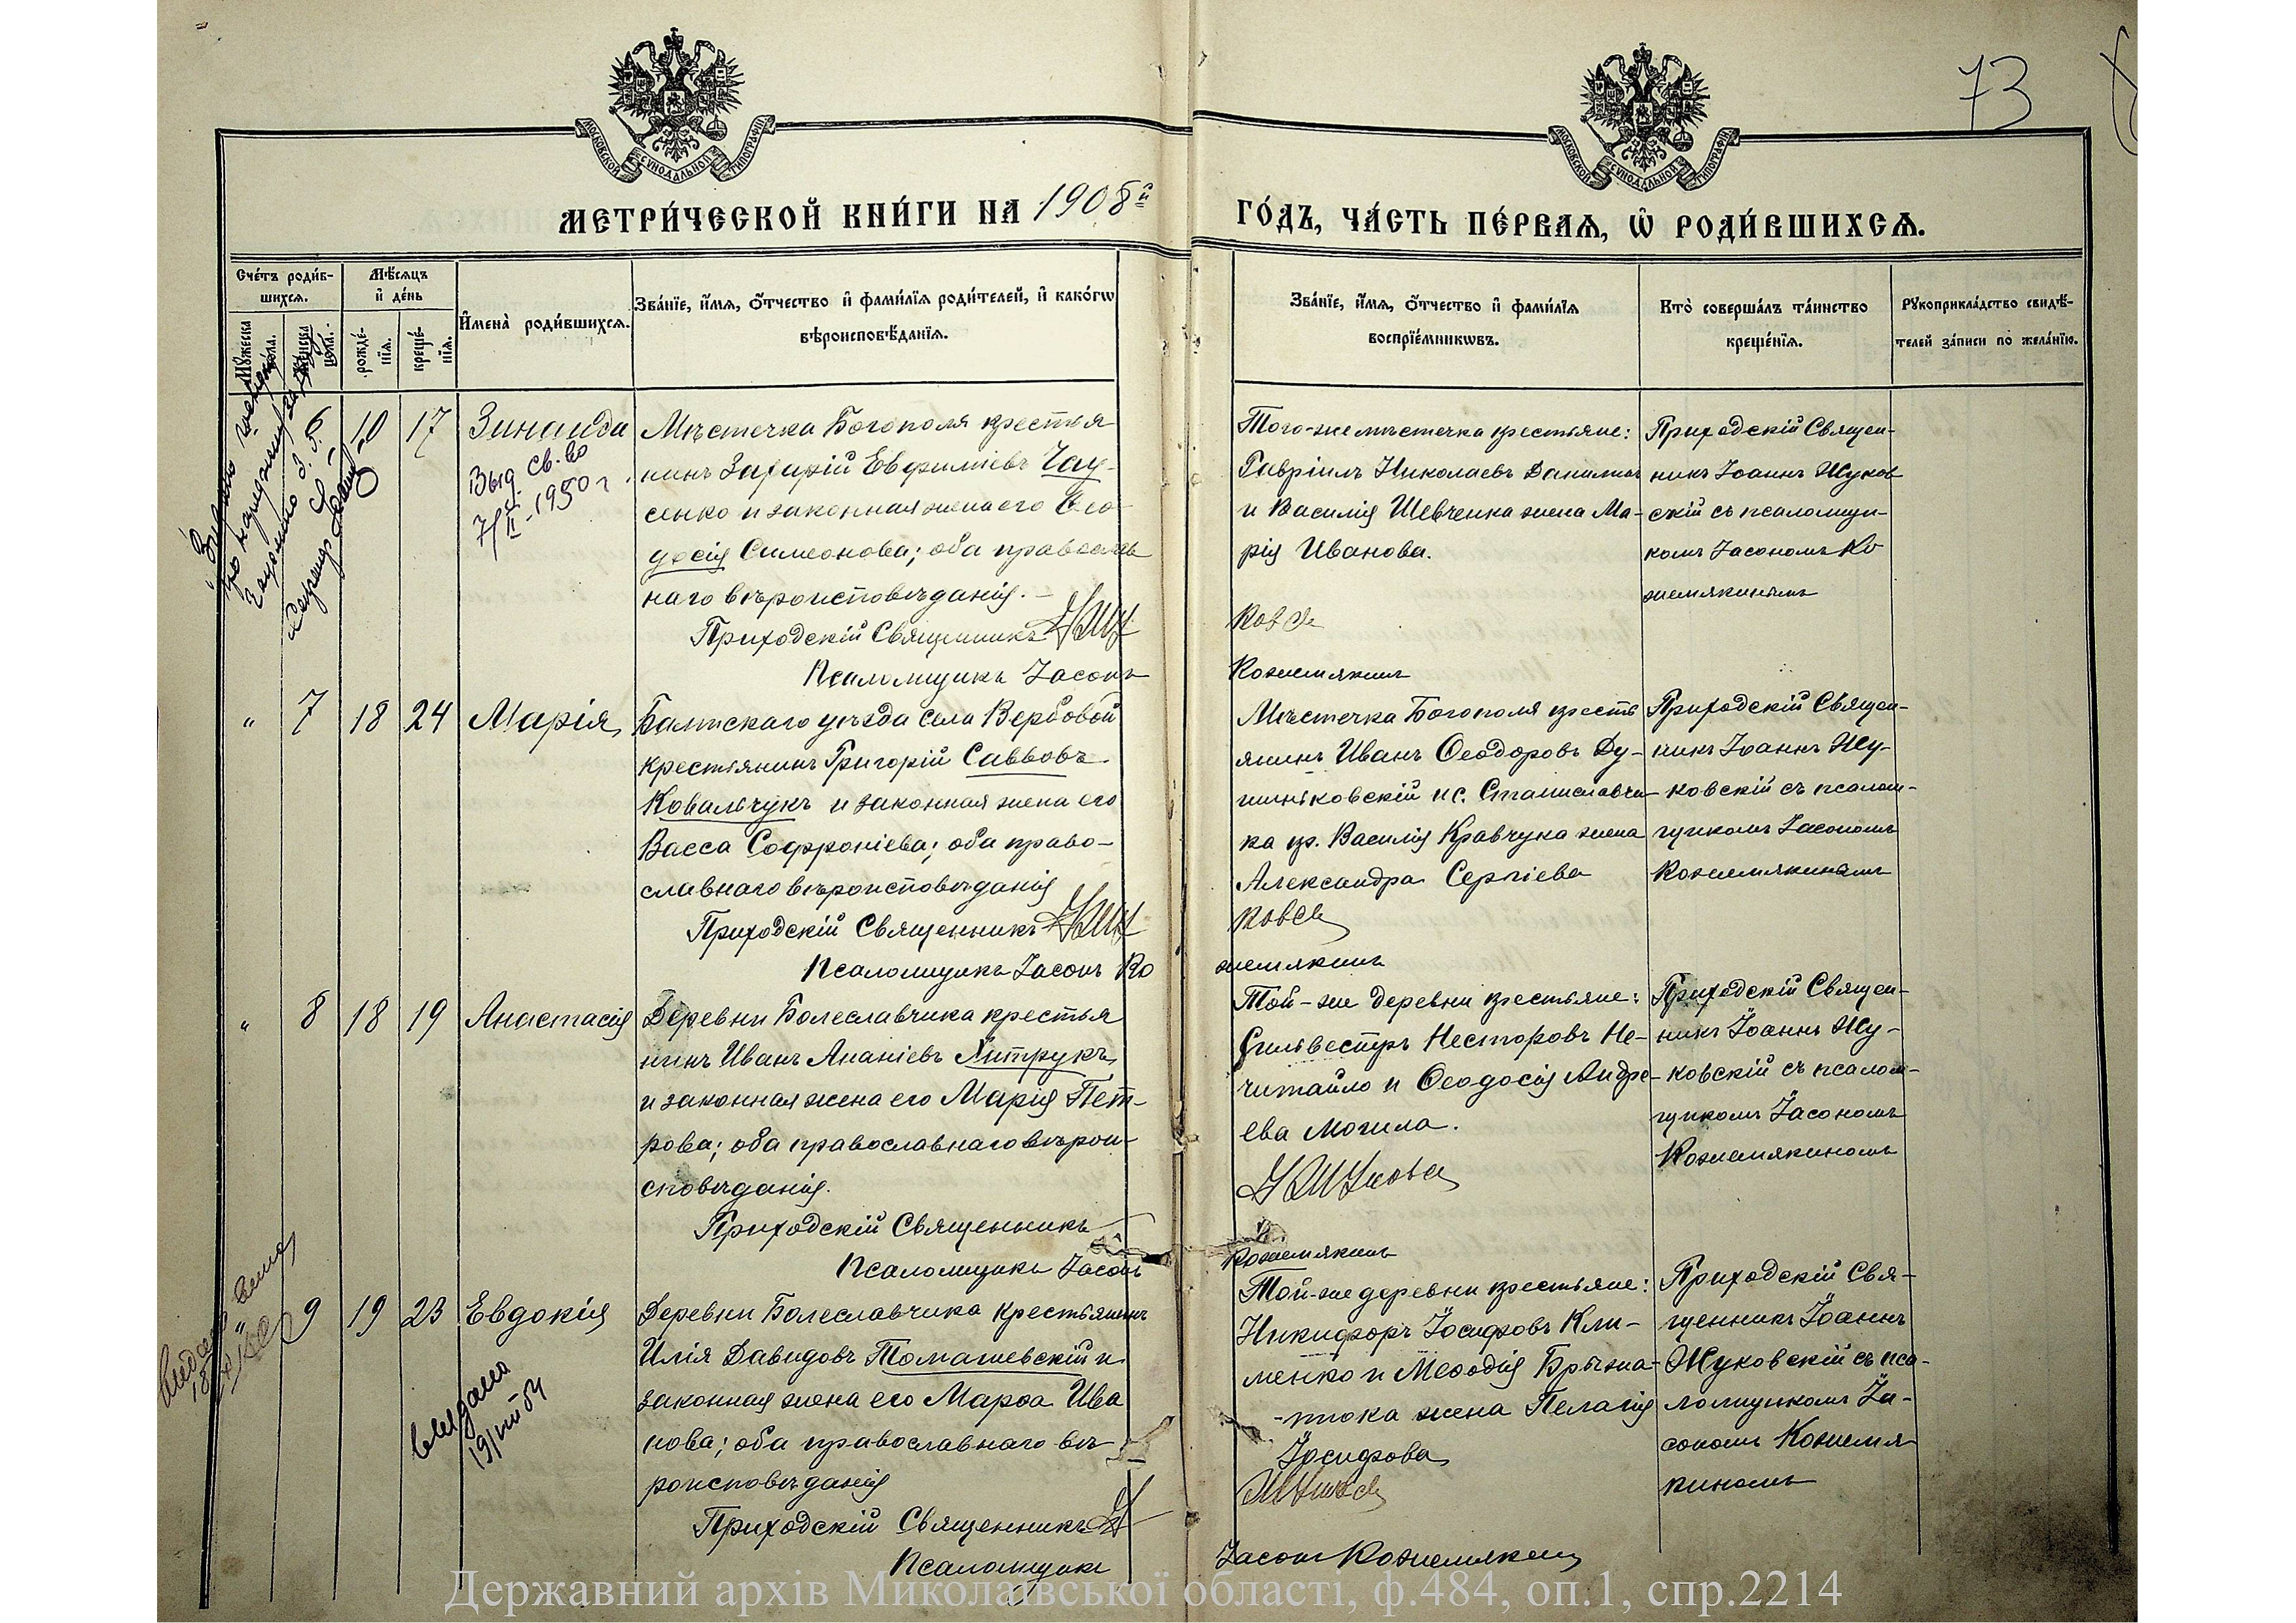 73
МОСКОВСКОЙ СУНОДАЛЬНОЙ ТИПОГРАФІИ
МОСКОВСКОЙ СУНОДАЛЬНОЙ ТИПОГРАФІИ
МЕТРИ́ЧЕСКОЙ КНИ́ГИ НА 1908й
ГО́ДЪ, ЧА́СТЬ ПЕ́РВАѦ, Ѡ РОДИ́ВШИХСѦ.
Сче́тъ роди́в-
шихсѧ.
Мꙋжеска по́ла.
Же́нска по́ла.
Мѣ́сѧцъ
и҆ де́нь
рожде́-
нїѧ.
креще́-
нїѧ.
И҆мена̀ роди́вшихсѧ.
Зва́нїе, и҆́мѧ, ѻ҆́тчество и҆ фами́лїѧ роди́телей, и҆ како́гѡ
вѣроисповѣ́данїѧ.
Зва́нїе, и҆́мѧ, ѻ҆́тчество и҆ фами́лїѧ
воспрїе́мникѡвъ.
Кто̀ соверша́лъ та́инство
креще́нїѧ.
Рꙋкоприкла́дство свидѣ́-
телей за́писи по жела́нїю.
6 10 17 Зинаида
Выд. св.во
7/II-1950 г.
Мѣстечка Богополя крестья
нинъ Захарій Евфиміевъ Чау-
сенко и законная жена его Ѳео-
досія Симеонова; оба православ
наго вѣроисповѣданія.
Приходскій Священникъ
Псаломщикъ Іасонъ
Того-же мѣстечка крестьяне:
Гавріилъ Николаевъ Данилюк
и Василія Шевченка жена Ма-
рія Иванова.
Кожемякинъ
Приходскій Священ-
никъ Іоаннъ Жуков
скій съ псаломщи-
комъ Іасономъ Ко
жемякинымъ
" 7 18 24 Марія
Балтскаго уѣзда села Вербовой
крестьянинъ Григорій Саввовъ
Ковальчукъ и законная жена его
Васса Софроніева; оба право-
славнаго вѣроисповѣданія
Приходскій Священникъ
Псаломщикъ Іасонъ Ко
Мѣстечка Богополя кресть
янинъ Иванъ Ѳеодоровъ Ду-
шняковскій и с. Станиславчи-
ка кр. Василія Кравчука жена
Александра Сергіева
жемякинъ
Приходскій Священ-
никъ Іоаннъ Жу-
ковскій съ псалом-
щикомъ Іасономъ
Кожемякинымъ
" 8 18 19 Анастасія
Деревни Болеславчика крестья
нинъ Иванъ Ананіевъ Хитрукъ
и законная жена его Марія Пет-
рова; оба православнаго вѣрои-
сповѣданія.
Приходскій Священникъ
Псаломщикъ Іасонъ
Той-же деревни крестьяне:
Сильвестръ Несторовъ Не-
читайло и Ѳеодосія Андре-
ева Могила.
Кожемякинъ
Приходскій Священ-
никъ Іоаннъ Жу-
ковскій съ псалом-
щикомъ Іасономъ
Кожемякиномъ
" 9 19 23 Евдокія
выдано
19/VIII 54
Деревни Болеславчика крестьянинъ
Илія Давидовъ Томашевскій и
законная жена его Марѳа Ива
нова; оба православнаго вѣ-
роисповѣданія
Приходскій Священникъ
Псаломщикъ
Той-же деревни крестьяне:
Никифоръ Іосифовъ Кли-
менко и Меѳодія Брыжа-
-тюка жена Пелагія
Іосифова
Іасонъ Кожемякинъ
Приходскій Свя-
щенникъ Іоаннъ
Жуковскій съ пса-
ломщикомъ Іа-
сономъ Кожемя-
киномъ
Державний архів Миколаївської області, ф.484, оп.1, спр.2214